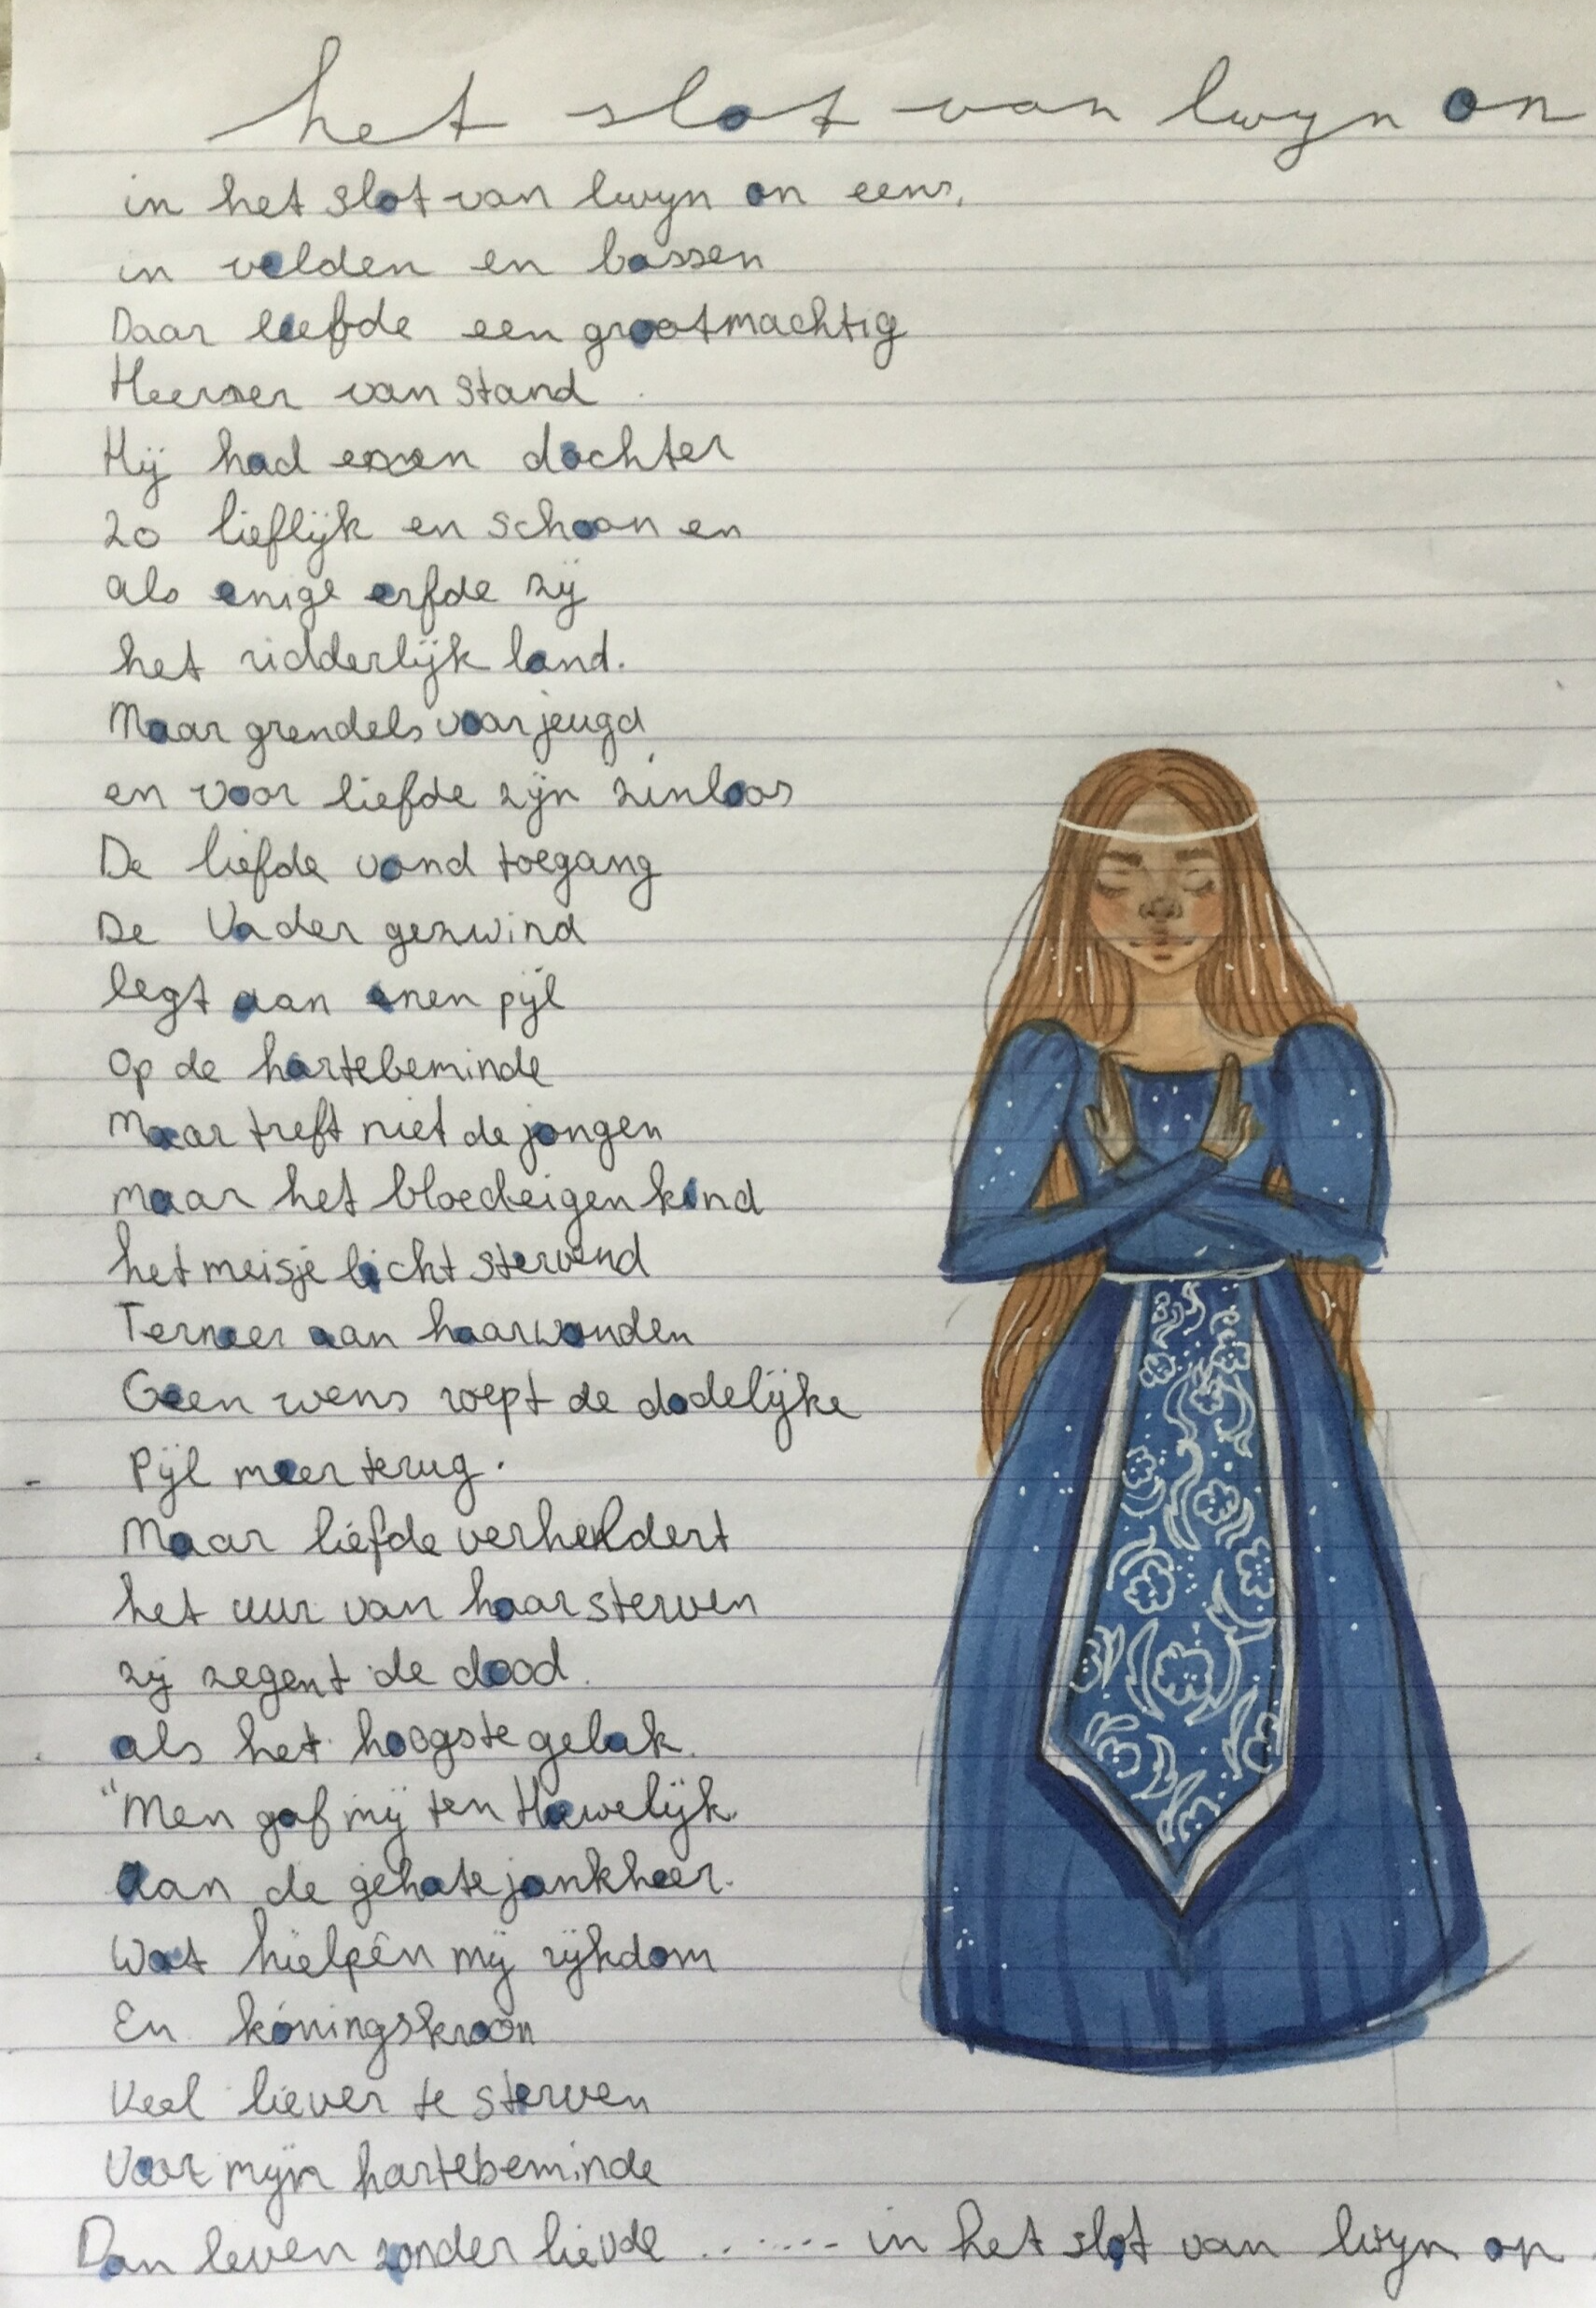 het slot van lwyn on
in het slot van lwyn on eens,
in velden en bossen
Daar leefde een grootmachtig
Heerser van stand
Hij had enen dochter
zo lieflijk en schoon en
als enige erfde zij
het ridderlijk land.
Maar grendels voor jeugd
en voor liefde zijn zinloos
De liefde vond toegang
De Vader gezwind
legt aan enen pijl
Op de hartebeminde
Maar treft niet de jongen
maar het bloedeigen kind
het meisje lickt stervend
Terneer aan haar wonden
Geen wens roept de dodelijke
Pijl meer terug.
Maar liefde verheldert
het uur van haar sterven
zij zegent de dood.
als het hoogste geluk.
"Men gaf mij ten Huwelijk
Aan de gehate jonkheer.
Wat hielpen mij rijkdom
En koningskroon
Veel liever te sterven
Voor mijn hartebeminde
Dan leven zonder lievde ....... in het slot van lwyn on.